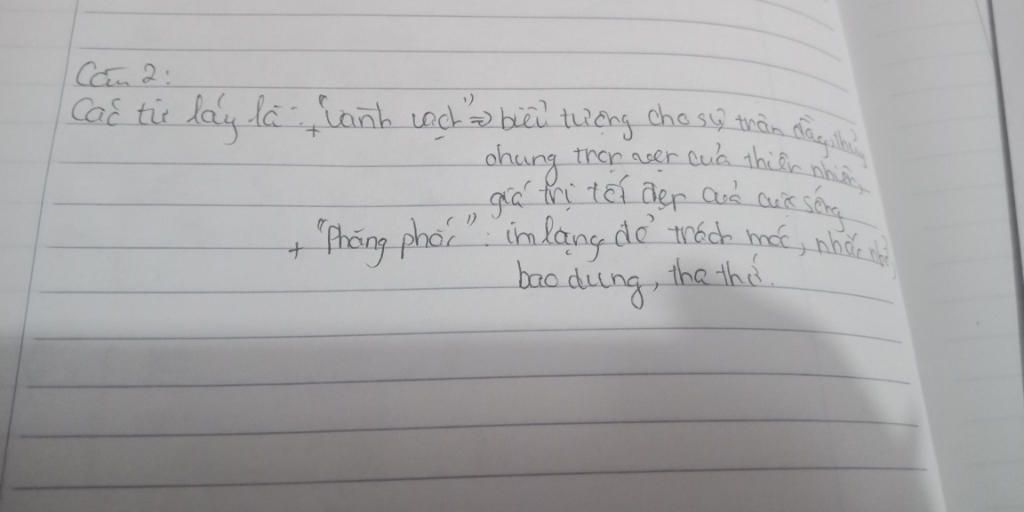 Câu 2:
Các từ láy là: + "Vành vạch" => biểu tượng cho sự tròn đầy, thủy
chung trọn vẹn của thiên nhiên,
giá trị tốt đẹp của cuộc sống
+ "Phăng phắc": im lặng để trách móc, nhắc nhở,
bao dung, tha thứ.